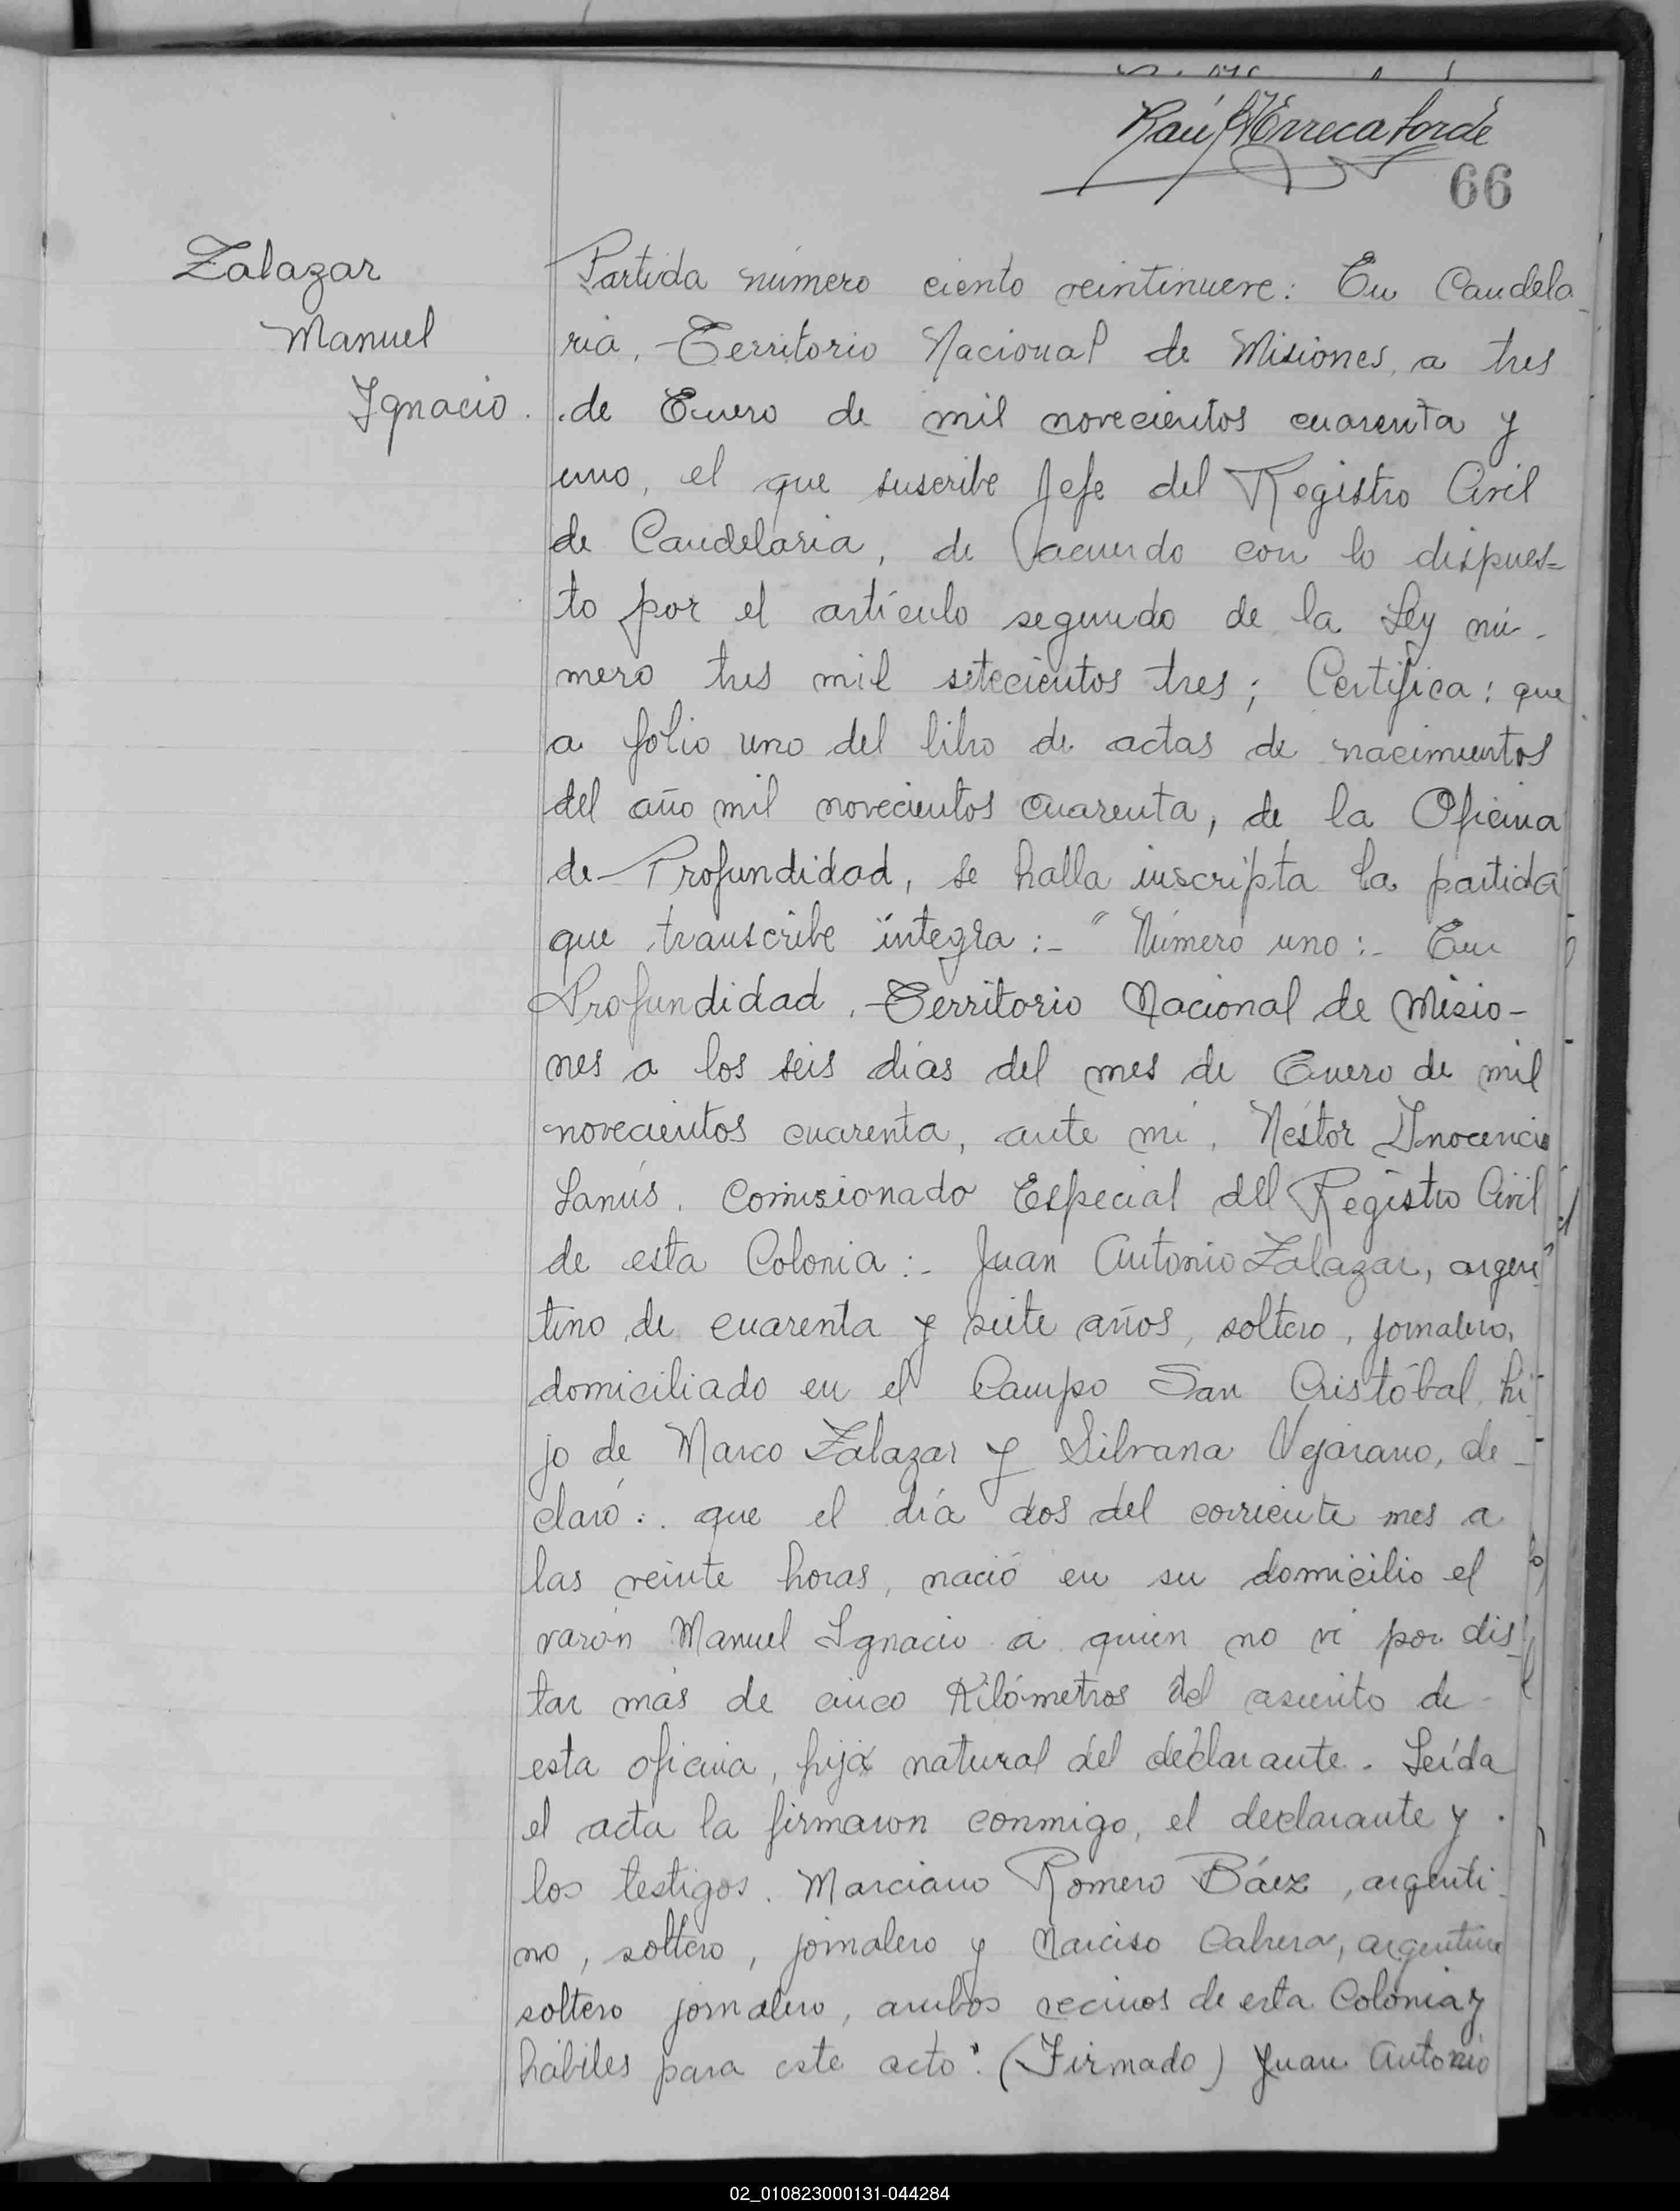 Raúl Errecaborde
66
Zalazar
Manuel
Ignacio.
Partida número ciento veintinueve: En Candela-
ria, Territorio Nacional de Misiones, a tres
de Enero de mil novecientos cuarenta y
uno, el que suscribe Jefe del Registro Civil
de Candelaria, de acuerdo con lo dispues=
to por el artículo segundo de la Ley nú-
mero tres mil setecientos tres; Certifica: que
a folio uno del libro de actas de nacimientos
del año mil novecientos cuarenta, de la Oficina
de Profundidad, se halla inscripta la partida
que transcribe íntegra:- "Número uno:- En
Profundidad, Territorio Nacional de Misio-
nes a los seis días del mes de Enero de mil
novecientos cuarenta, ante mí, Néstor Inocencio
Lanús, Comisionado Especial del Registro Civil
de esta Colonia:- Juan Antonio Zalazar, argen
tino de cuarenta y siete años, soltero, jornalero,
domiciliado en el Campo San Cristóbal, hi-
jo de Marco Zalazar y Silvana Vejarano, de-
claró:. que el día dos del corriente mes a
las veinte horas, nació en su domicilio el
varón Manuel Ignacio a quien no ví por dis-
tar más de cinco Kilómetros del asiento de
esta oficina, hijo natural del declarante. Leída
el acta la firmaron conmigo, el declarante y
los testigos. Marciano Romero Báez, argenti-
no, soltero, jornalero y Narciso Cabrera, argentino
soltero jornalero, ambos vecinos de esta Colonia y
hábiles para este acto". (Firmado) Juan Antonio
02_010823000131-044284